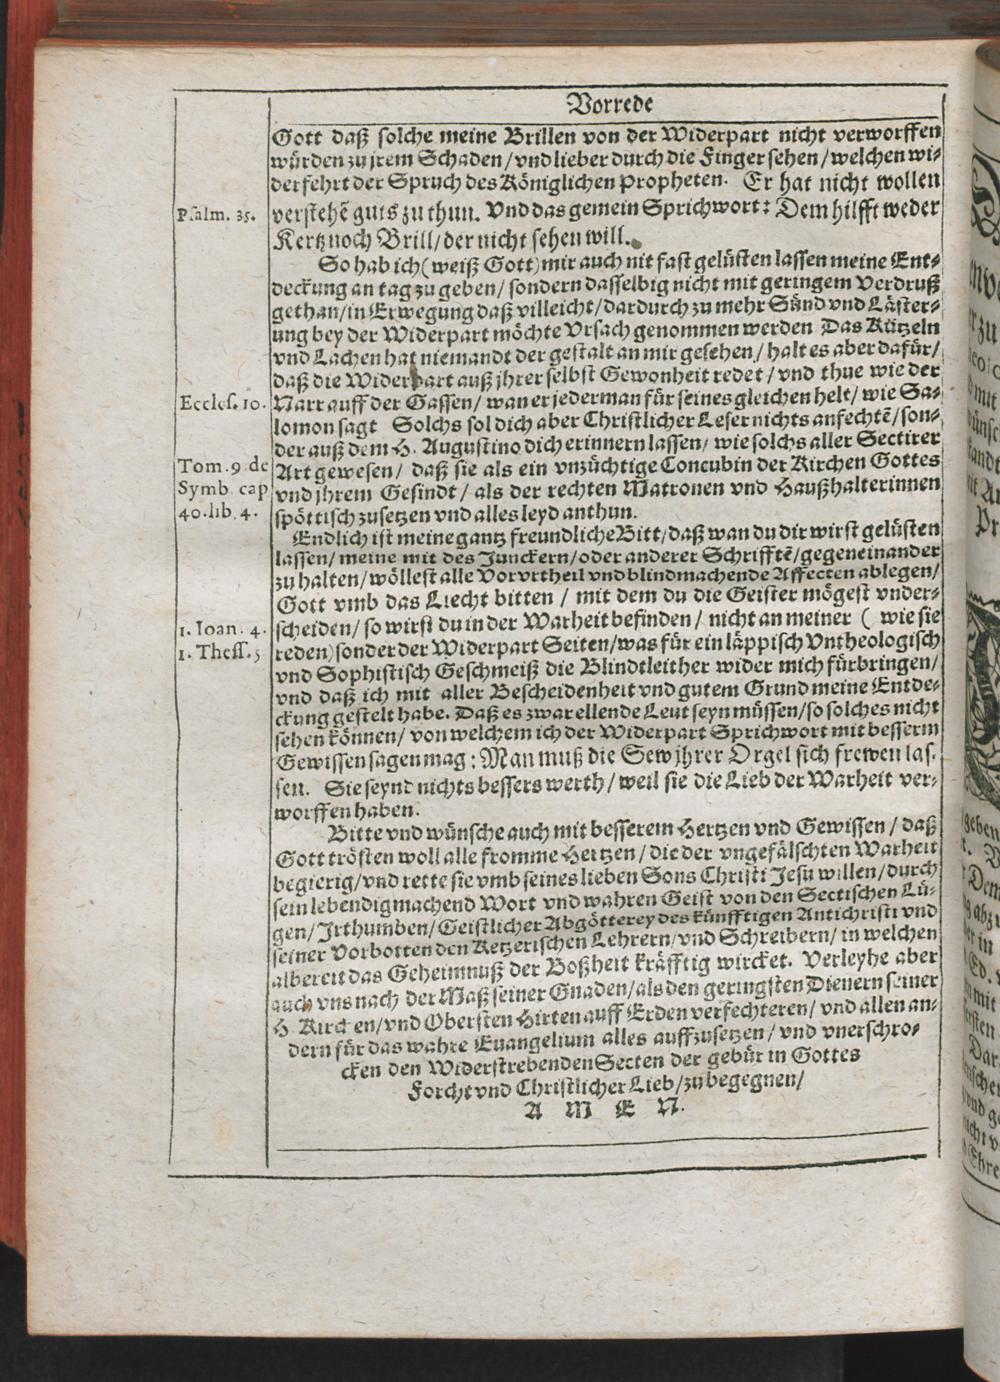 Vorrede
Gott daß solche meine Brillen von der Widerpart nicht verworffen
würden zu jrem Schaden/vnd lieber durch die Finger sehen/welchen wi⸗
derfehrt der Spruch des Königlichen Propheten. Er hat nicht wollen
Psalm. 35.
verstehẽ guts zu thun. Vnd das gemein Sprichwort: Dem hilfft weder
Kertz noch Brill/der nicht sehen will.
So hab ich (weiß Gott) mir auch nit fast gelüsten lassen meine Ent⸗
deckung an tag zu geben/ sondern dasselbig nicht mit geringem Verdruß
gethan/in Erwegung daß villeicht/dardurch zu mehr Sünd vnd Läster⸗
ung bey der Widerpart möchte Vrsach genommen werden Das Kützeln
vnd Lachen hat niemandt der gestalt an mir gesehen/ halt es aber dafür/
daß die Widerpart auß jhrer selbst Gewonheit redet/ vnd thue wie der
Eccles. 10.
Narr auff der Gassen/ wan er jederman für seines gleichen helt/ wie Sa⸗
lomon sagt Solchs sol dich aber Christlicher Leser nichts anfechtẽ/son⸗
der auß dem H. Augustino dich erinnern lassen/ wie solchs aller Sectirer
Tom. 9 de
Symb cap
40. lib. 4.
Art gewesen/ daß sie als ein vnzüchtige Concubin der Kirchen Gottes
vnd jhrem Gesindt/ als der rechten Matronen vnd Haußhalterinnen
spöttisch zusetzen vnd alles leyd anthun.
Endlich ist meine gantz freundliche Bitt/daß wan du dir wirst gelüsten
lassen/ meine mit des Junckern/oder anderer Schrifftẽ/gegeneinander
zu halten/wöllest alle Vorvrtheil vnd blindmachende Affecten ablegen/
Gott vmb das Liecht bitten/ mit dem du die Geister mögest vnder⸗
1. Ioan. 4.
1. Thess. 5
scheiden/ so wirst du in der Warheit befinden/ nicht an meiner ( wie sie
reden) sonder der Widerpart Seiten/was für ein läppisch Vntheologisch
vnd Sophistisch Geschmeiß die Blindtleither wider mich fürbringen/
vnd daß ich mit aller Bescheidenheit vnd gutem Grund meine Entde⸗
ckung gestelt habe. Daß es zwar ellende Leut seyn müssen/so solches nicht
sehen können/ von welchem ich der Widerpart Sprichwort mit besserm
Gewissen sagen mag: Man muß die Sew jhrer Orgel sich frewen las⸗
sen. Sie seynt nichts bessers werth/ weil sie die Lieb der Warheit ver⸗
worffen haben.
Bitte vnd wünsche auch mit besserem Hertzen vnd Gewissen/ daß
Gott trösten woll alle fromme Hertzen/ die der vngefälschten Warheit
begierig/vnd rette sie vmb seines lieben Sons Christi Jesu willen/durch
sein lebendigmachend Wort vnd wahren Geist von den Sectischen Lü⸗
gen/Jrthumben/Geistlicher Abgötterey des künfftigen Antichristi vnd
seiner Vorbotten den Ketzerischen Lehrern/vnd Schreibern/ in welchen
albereit das Geheimnuß der Boßheit kräfftig wircket. Verleyhe aber
auch vns nach der Maß seiner Gnaden/als den geringsten Dienern seiner
H. Kirchen/vnd Obersten Hirten auff Erden verfechteren/ vnd allen an⸗
dern für das wahre Euangelium alles auffzusetzen/ vnd vnerschro⸗
cken den Widerstrebenden Secten der gebür in Gottes
Forcht vnd Christlicher Lieb/zu begegnen/
A M E N.